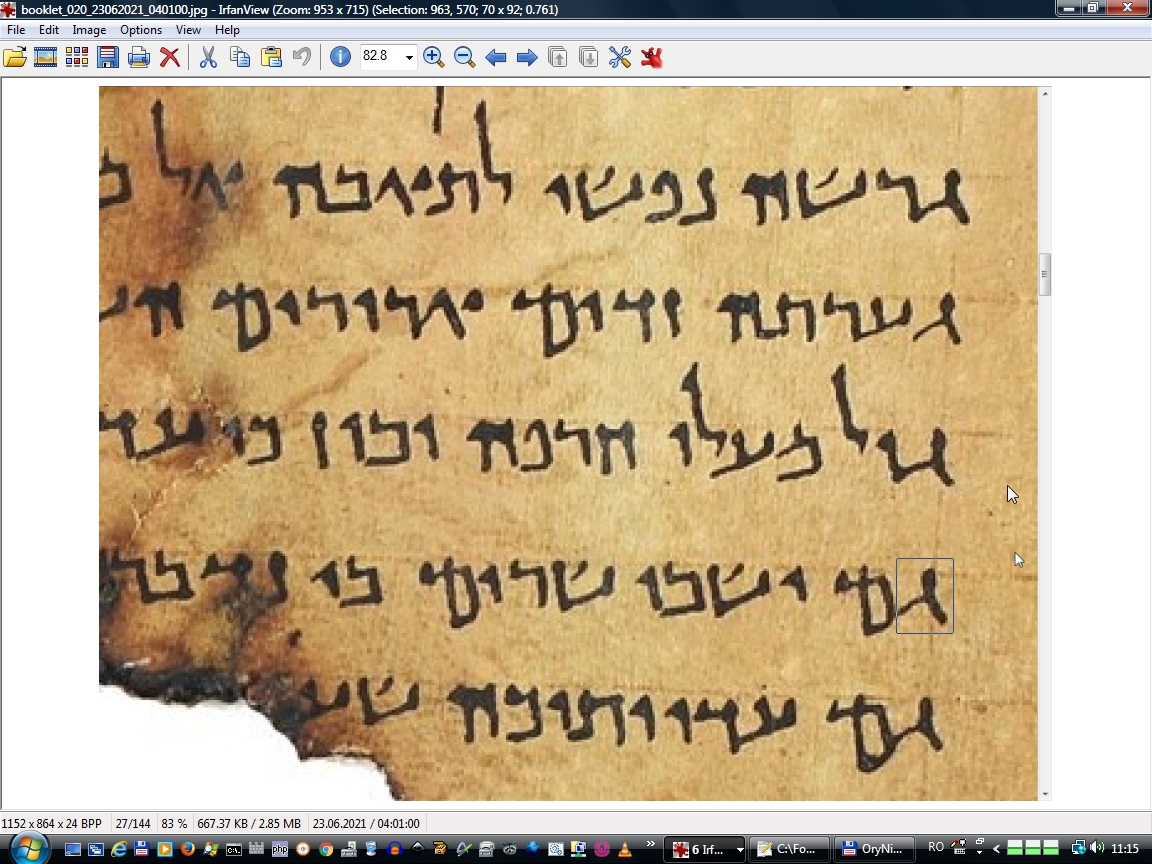 booklet_020_23062021_040100.jpg - IrfanView (Zoom: 953 x 715) (Selection: 963, 570; 70 x 92; 0.761)
File Edit Image Options View Help
82.8
גרשה נפשי לתיאבה אל
גערתה זדים ארורים
גול מעלי חרפה ובוז כי
גם ישבו שרים בי
גם עדוותיכה
1152 x 864 x 24 BPP 27/144 83 % 667.37 KB / 2.85 MB 23.06.2021 / 04:01:00
php 6 Irf... C:\Fo... OryNi... RO 11:15